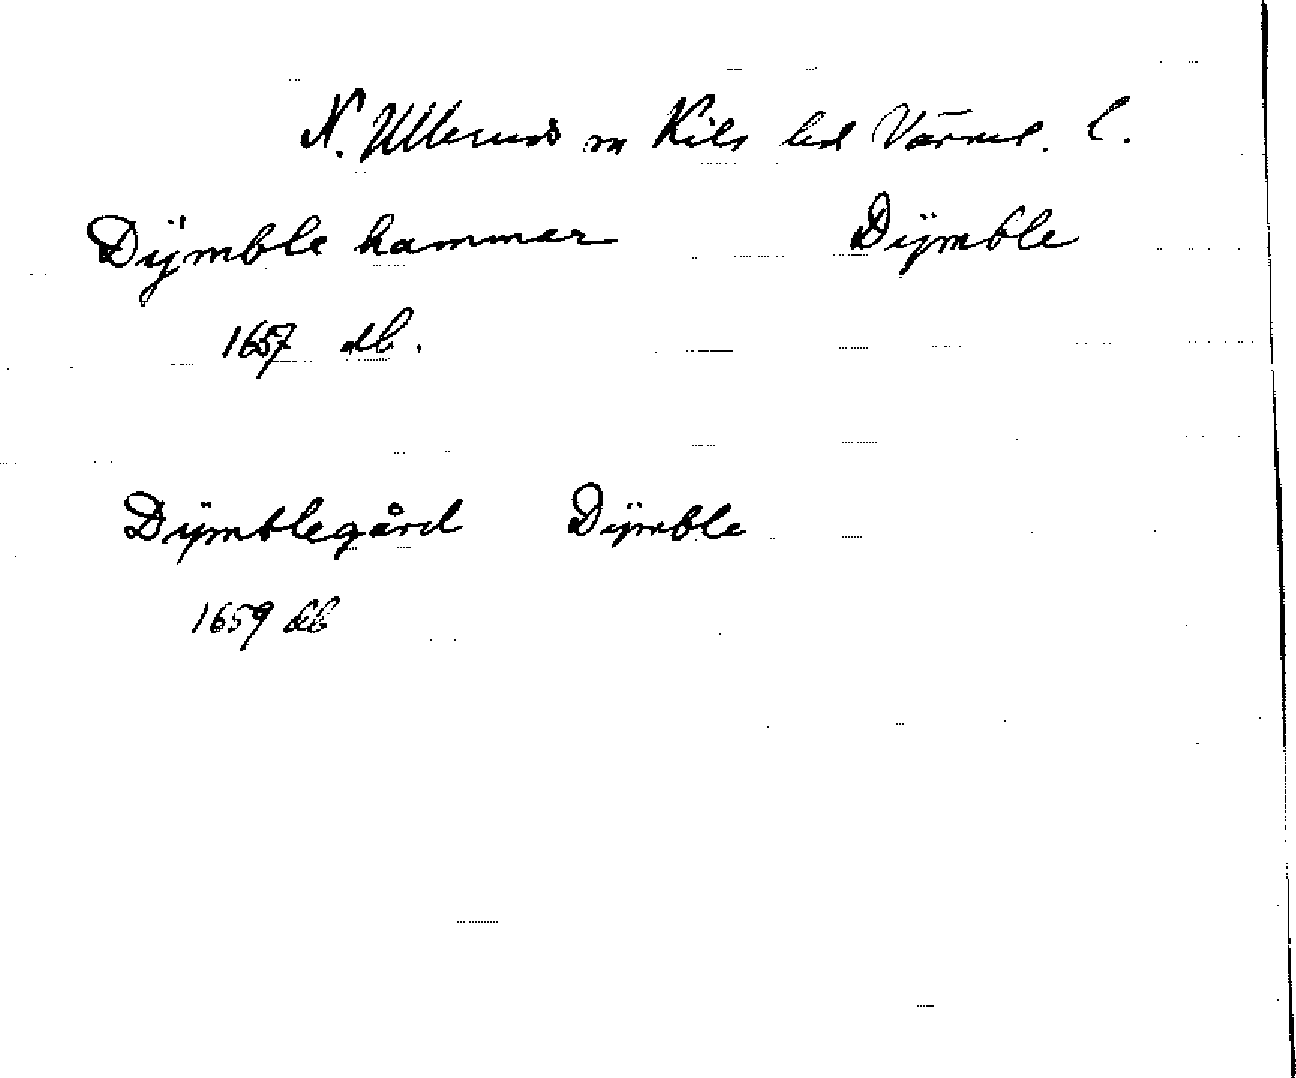 N. Ulleruds sn Kils hd Värml. l.
Dÿmble hammar Dÿmble
1657 db.
Dÿmblegård Dÿmble
1659 db